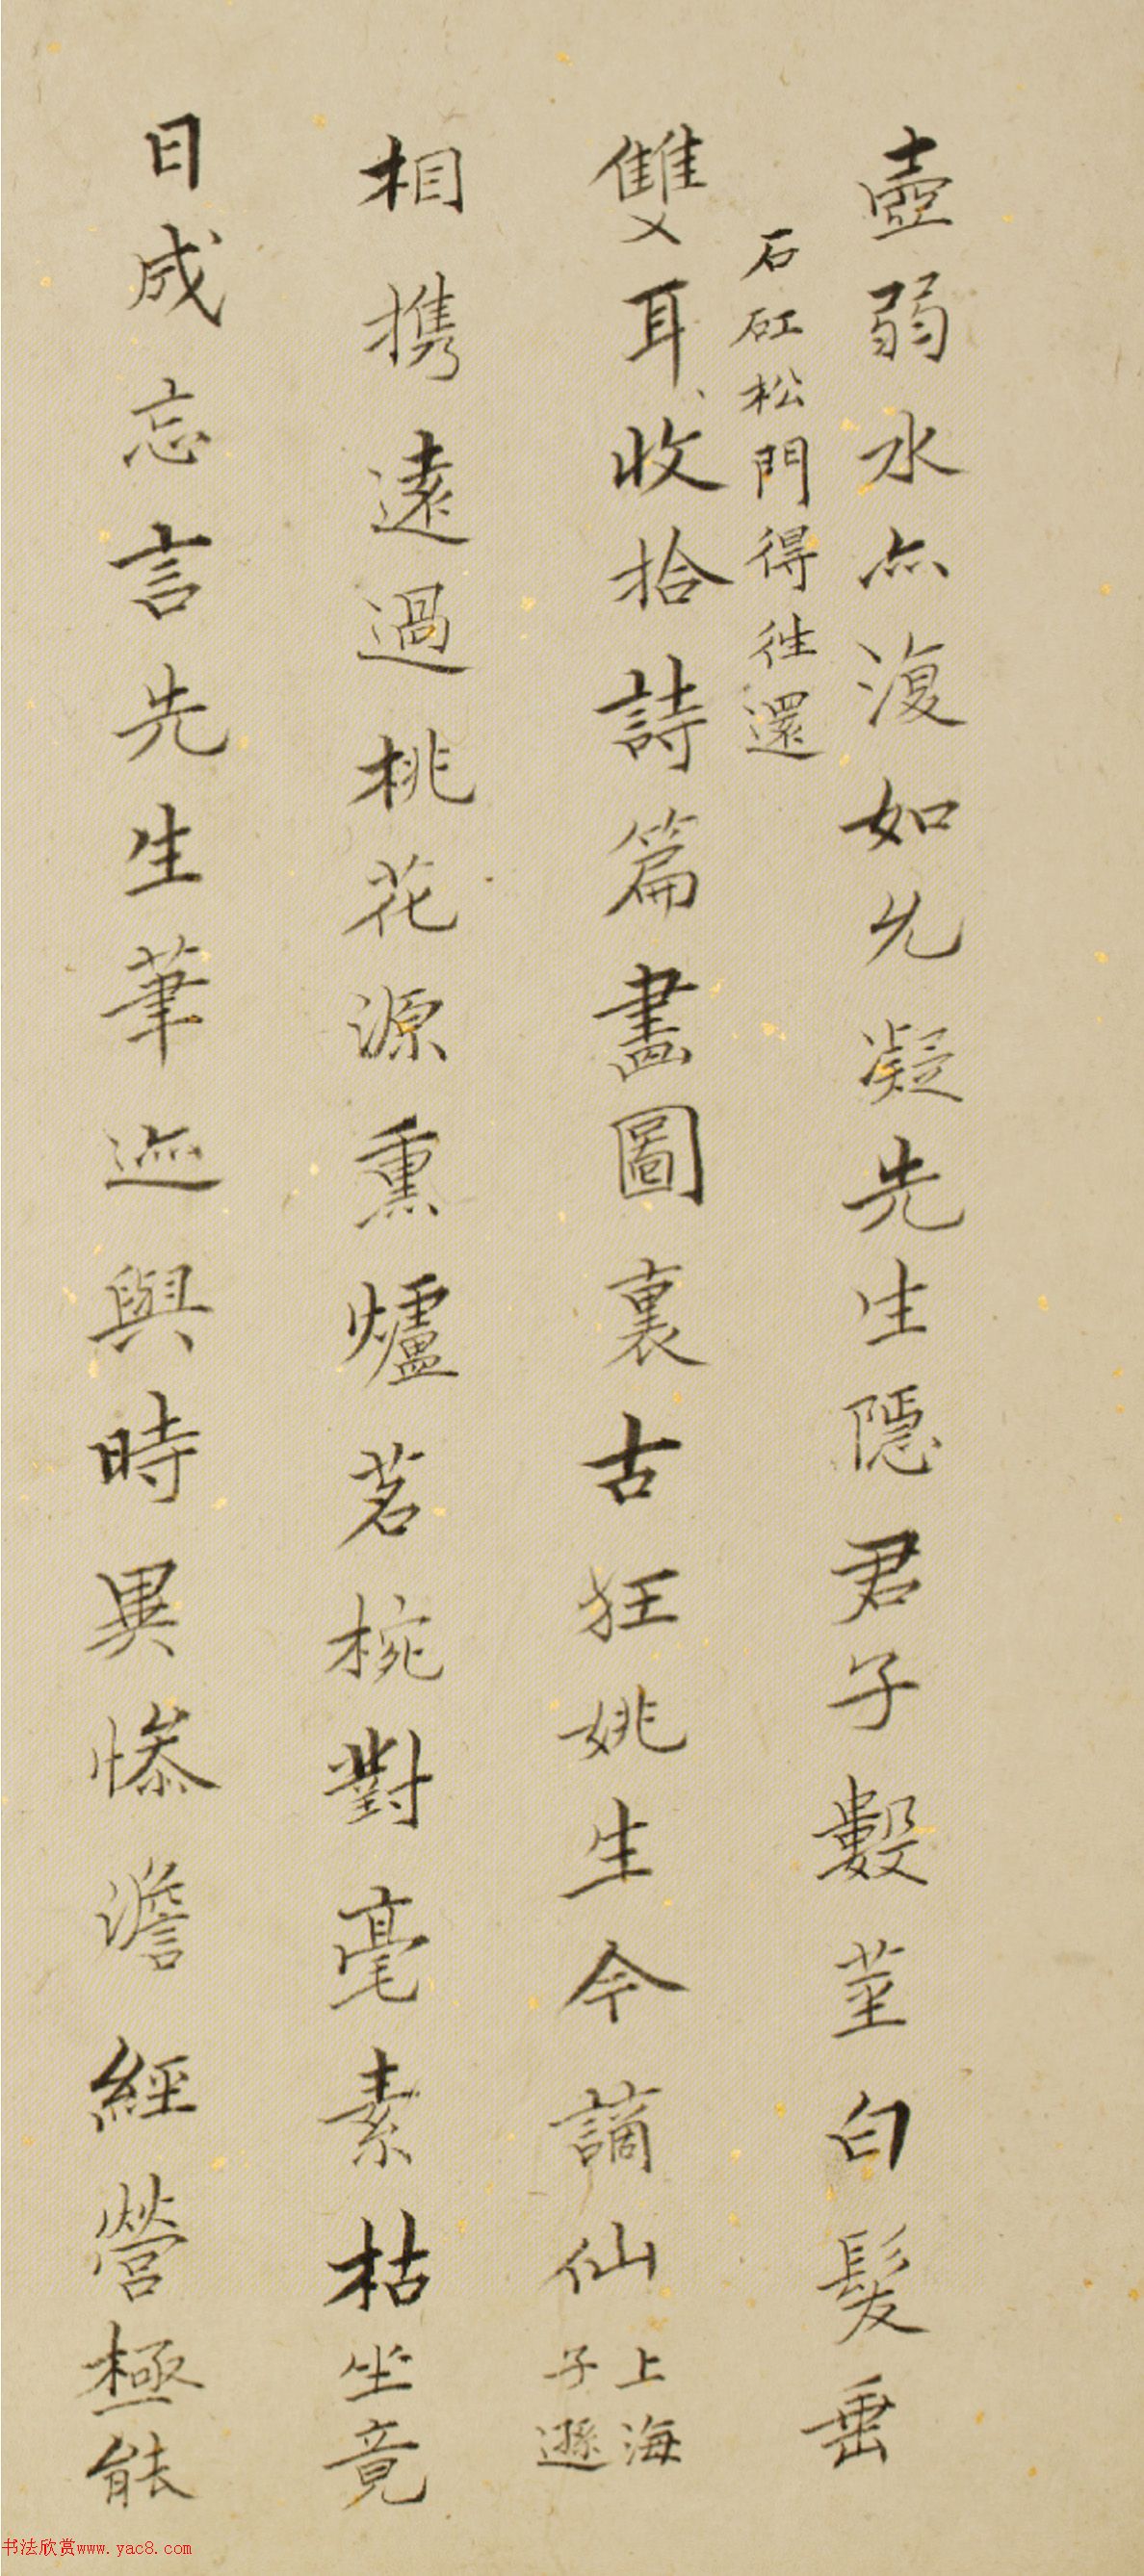 壺弱水亦復如允凝先生隱君子數莖白髮垂
石矼松門得往還
雙耳收拾詩篇畫圖裏古狂姚生今謫仙
上海
子遜
相携遠過桃花源熏爐茗椀對毫素枯坐竟
日成忘言先生筆迹與時異慘澹經營極能
书法欣赏www.yac8.com